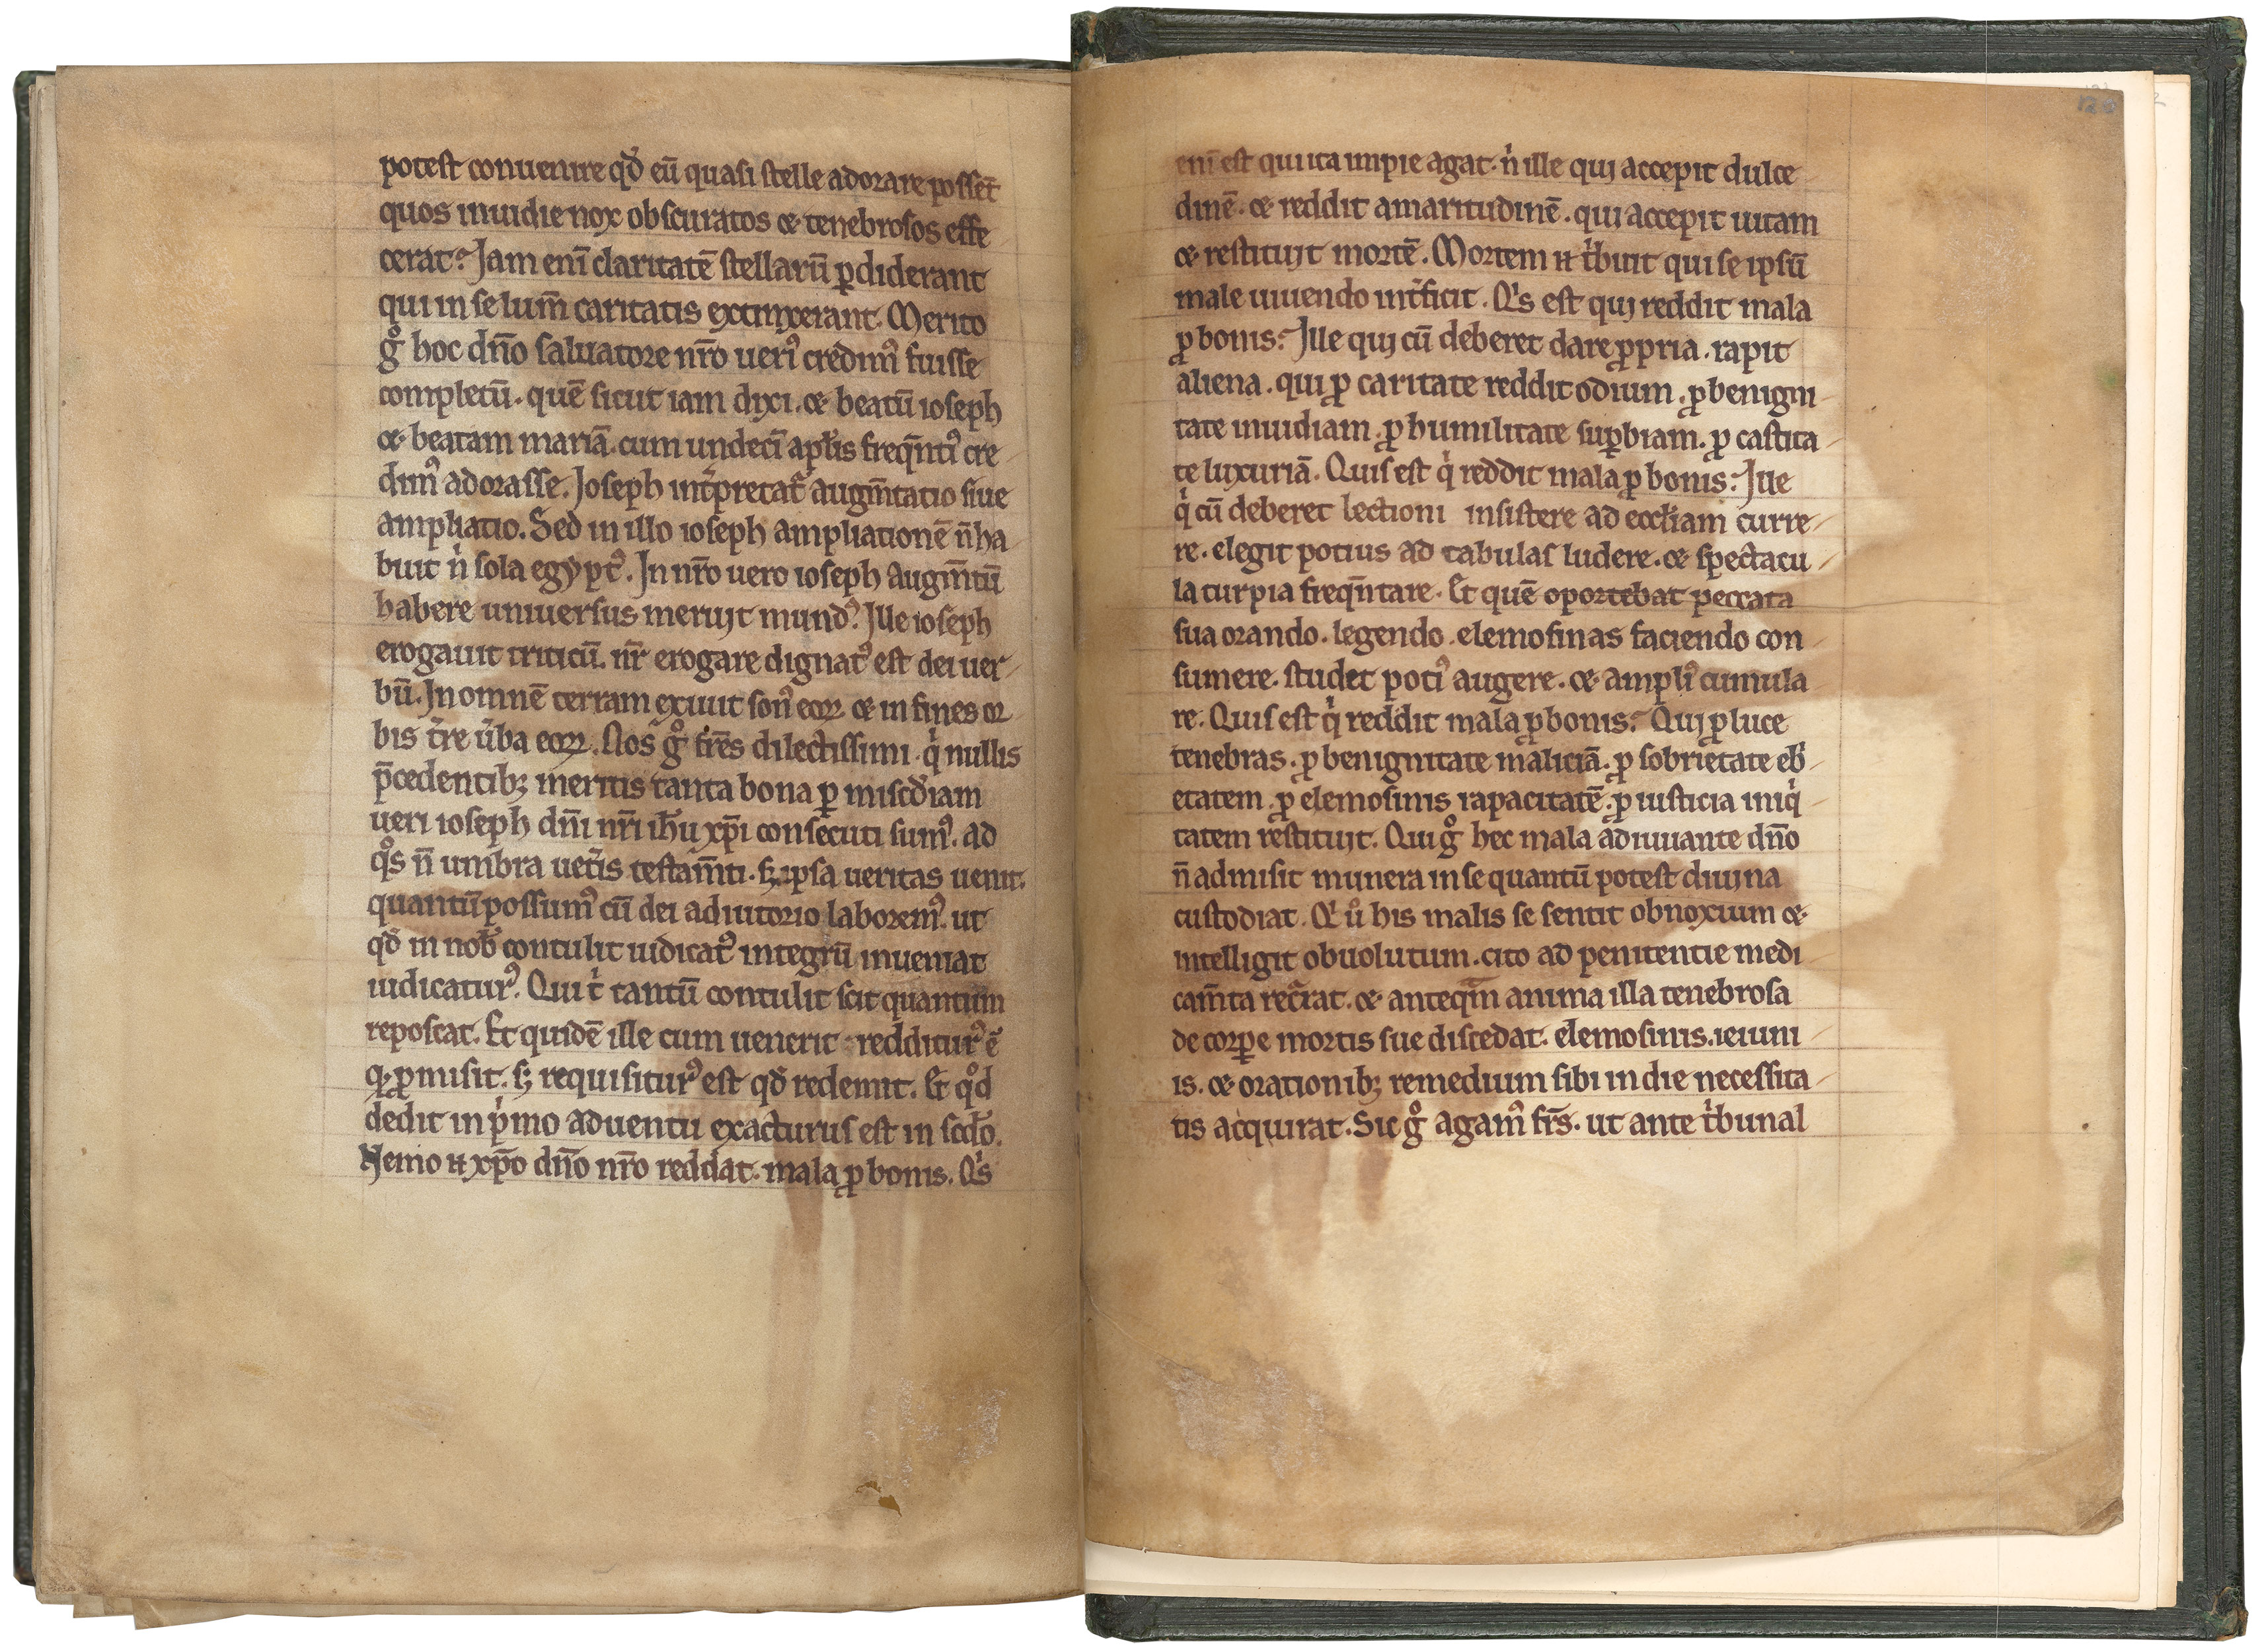 potest conuenire qd̛ eū quasi stelle adorare possēt
quos inuidie nox obscuratos ⁊ tenebrosos effe
cerat? Jam enī claritatē stellarū ꝑdiderant
qui in se lum̄ caritatis extinxerant. Merito
gͦ hoc dn̄o saluatore nr̄o ueriꝰ credimꝰ fuisse
completū. quē sicut iam dixi. ⁊ beatū ioseph
⁊ beatam mariā. cum undecī aplis freqn̄tiꝰ cre
dimꝰ adorasse. Joseph int̛pretat᷑ augm̄tatio siue
ampliatio. Sed in illo ioseph ampliationē n̄ ha
buit nͥ sola egyptꝰ. In nr̄o uero ioseph augm̄tū
habere uniuersus meruit mundꝰ. Ille ioseph
erogauit triticū. nr̄ erogare dignatꝰ est dei uer
bū. In omnē terram exiuit sonꝰ eoꝝ ⁊ in fines or
bis t̛re ưba eoꝝ. Nos gͦ fr̄es dilectissimi. qͥ nullis
p̄cedentibꝫ meritis tanta bona ꝑ misc̄diam
ueri ioseph dn̄i nr̄i ih̄u xp̄i consecuti sumꝰ. ad
qͦs n̄ umbra uet̛is testam̄ti. sꝫ ipsa ueritas uenit.
quantū possumꝰ cū dei adiutorio laboremꝰ. ut
qd̛ in nob̛ contulit iudicatꝰ integrū inueniat
iudicaturꝰ. Qui t̛ tantū contulit scit quantum
reposcat. Et quidē ille cum uenerit redditurꝰ ē
q. ꝓmisit. sꝫ requisiturꝰ est qd̛ redemit. Et qͦd
dedit in pͥmo aduentu exacturus est in scd̄o.
Nemo ⁊ xp̄o dn̄o nr̄o reddat mala ꝓ bonis. Qͥs
enī est qui ita impie agat. nͥ ille qui accepit dulce
dinē. ⁊ reddit amaritudinē. qui accepit uitam
⁊ restituit mortē. Mortem ⁊ tͥbuit qui se ipsū
male uiuendo int̛ficit. Qͥs est qui reddit mala
ꝓ bonis? Ille qui cū deberet dare ꝓpria. rapit
aliena. qui ꝓ caritate reddit odium. ꝓ benigni
tate inuidiam. ꝓ humilitate suꝑbiam. ꝓ castita
te luxuriā. Quis est qͥ reddit mala ꝓ bonis? Ille
qͥ cū deberet lectioni insistere ad eccl̄iam curre
re. elegit potius ad tabulas ludere. ⁊ spectacu
la turpia freqn̄tare. Et quē oportebat peccata
sua orando. legendo. elemosinas faciendo con
sumere. studet potiꝰ augere. ⁊ ampliꝰ cumula
re. Quis est qͥ reddit mala ꝓ bonis? Qui ꝓ luce
tenebras. ꝓ benignitate maliciā. ꝓ sobrietate ebͥ
etatem. ꝓ elemosinis rapacitatē. ꝓ iusticia iniqͥ
tatem restituit. Qui gͦ hec mala adiuuante dn̄o
n̄ admisit munera in se quantū potest diuina
custodiat. Qͥ uͦ his malis se sentit obnoxium ⁊
intelligit obuolutum. cito ad penitentie medi
cam̄ta recͥrat. ⁊ anteqm̄ anima illa tenebrosa
de corꝑe mortis sue discedat. elemosinis. ieiuni
is. ⁊ orationibꝫ remedium sibi in die necessita
tis acquirat. Sic gͦ agamꝰ fr̄s. ut ante tͥbunal